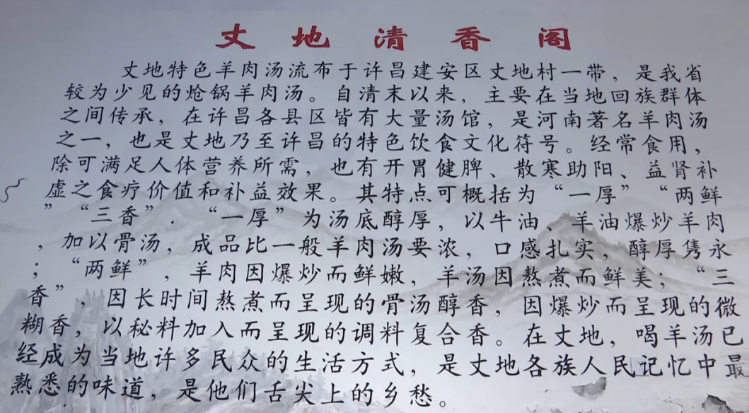 丈地清香阁
丈地特色羊肉汤流布于许昌建安区丈地村一带，是我省
较为少见的炝锅羊肉汤。自清末以来，主要在当地回族群体
之间传承，在许昌各县区皆有大量汤馆，是河南著名羊肉汤
之一，也是丈地乃至许昌的特色饮食文化符号。经常食用，
除可满足人体营养所需，也有开胃健脾、散寒助阳、益肾补
虚之食疗价值和补益效果。其特点可概括为“一厚”“两鲜
”“三香”．“一厚”为汤底醇厚，以牛油、羊油爆炒羊肉
，加以骨汤，成品比一般羊肉汤要浓，口感扎实，醇厚隽永
；“两鲜”，羊肉因爆炒而鲜嫩，羊汤因熬煮而鲜美；“三
香”，因长时间熬煮而呈现的骨汤醇香，因爆炒而呈现的微
糊香，以秘料加入而呈现的调料复合香。在丈地，喝羊汤已
经成为当地许多民众的生活方式，是丈地各族人民记忆中最
熟悉的味道，是他们舌尖上的乡愁。